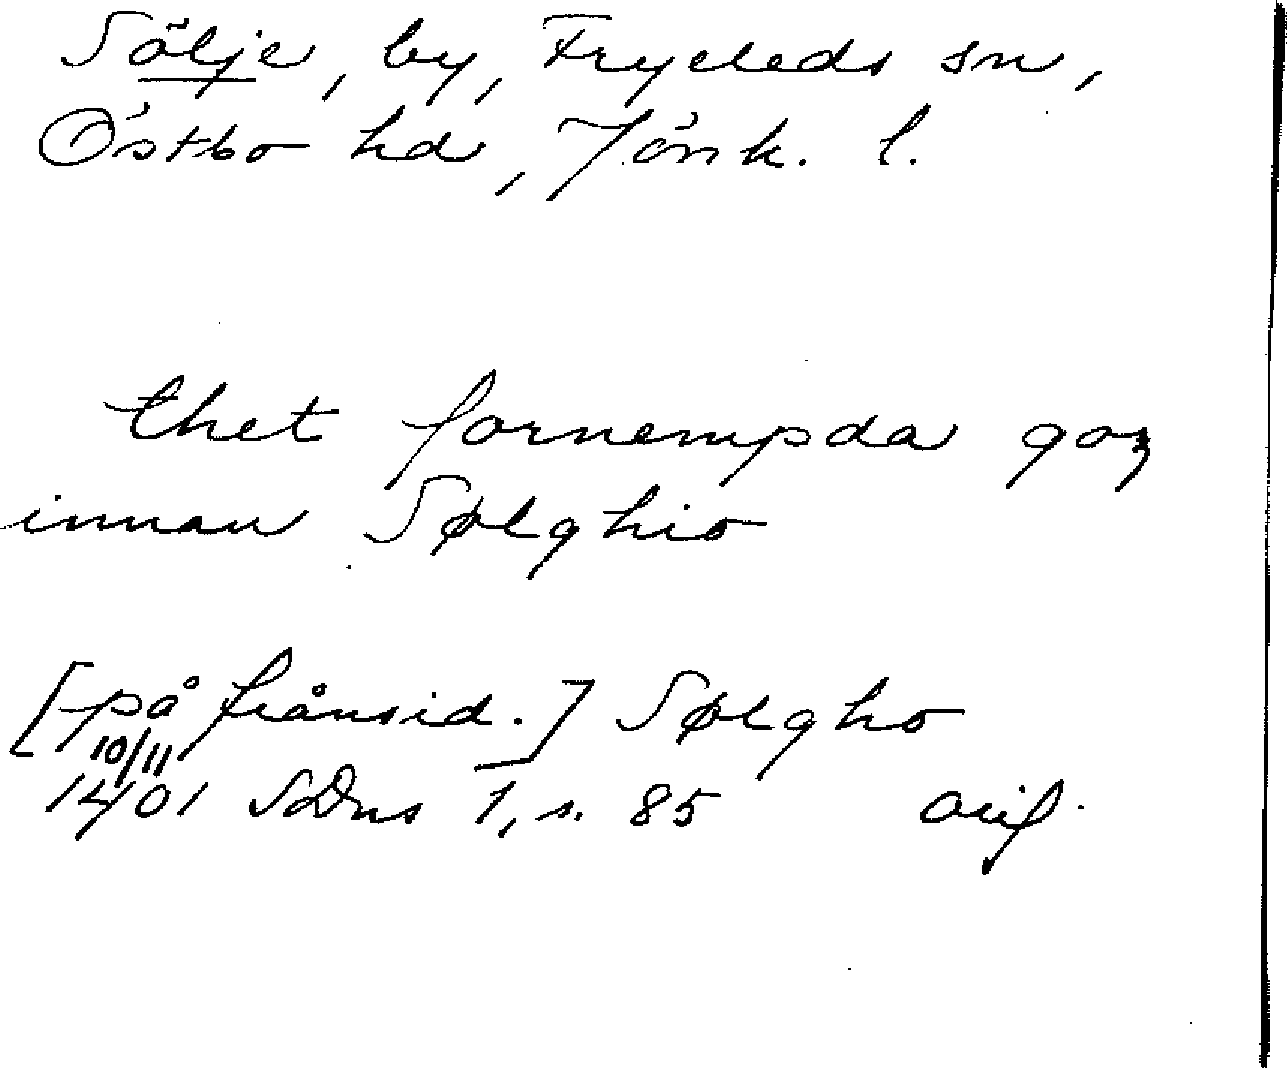 Sölje, by, Fryeleds sn,
Östbo hd, Jönk. l.
thet fornempda goz
innan Sølghio
[på frånsid.] Sølgho
10/11
1401 SDns 1, s. 85 avf.